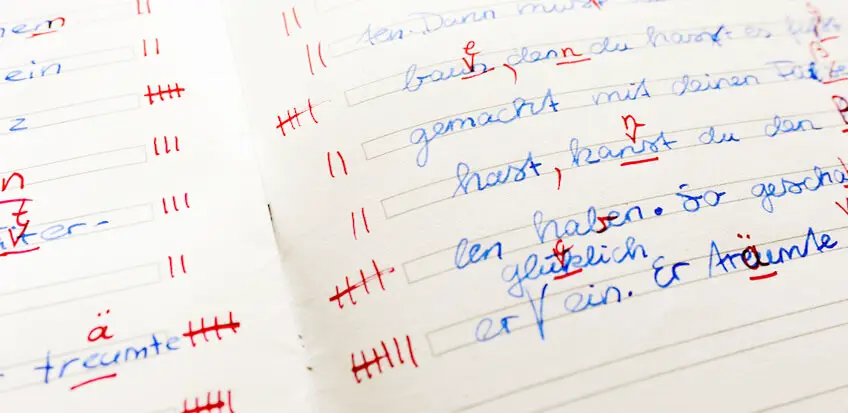 em
ein
z
n
t
ter-
ä
treumte
ten. Dann
e
, denn du hast es
gemacht mit deinen
n
hast, kanst du den
len haben. So gescha
glüklich
er ein. Er träumte